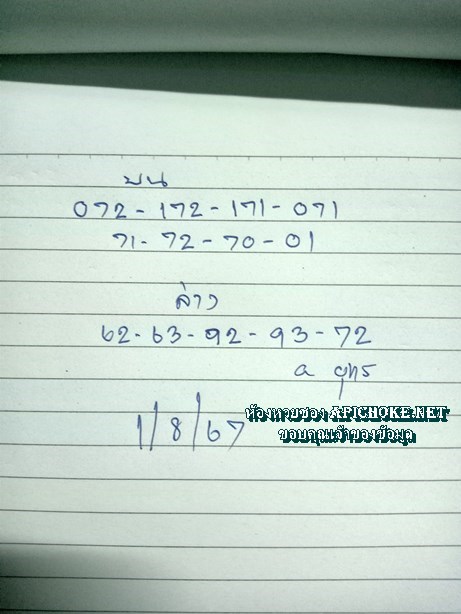 บน
072 - 172 - 171 - 071
71 - 72 - 70 - 01
ล่าง
62 - 63 - 92 - 93 - 72
a ยุทธ
1/8/67
ห้องหวยซอง APICHOKE.NET
ขอบคุณเจ้าของข้อมูล